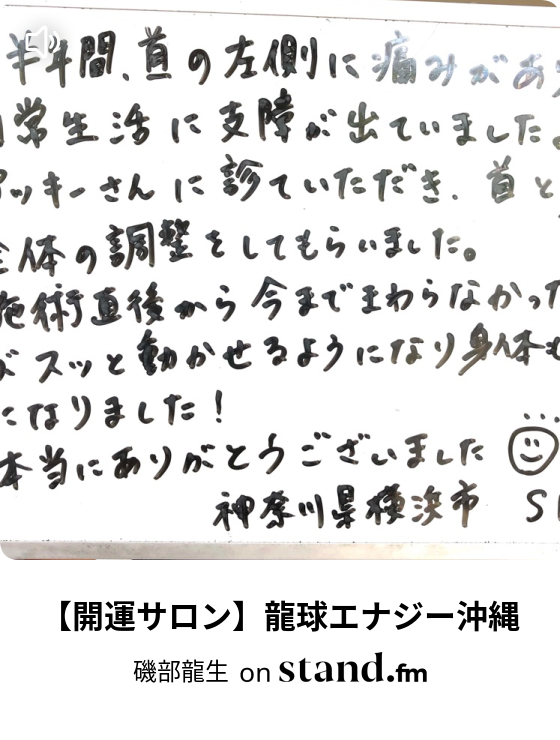 半年間、首の左側に痛みがあ
常生活に支障が出ていました
ッキーさんに診ていただき、首と
体の調整をしてもらいました。
施術直後から今までまわらなかった
スッと動かせるようになり身体も
になりました!
本当にありがとうございました
神奈川県横浜市 S
【開運サロン】龍球エナジー沖縄
磯部龍生 on stand.fm